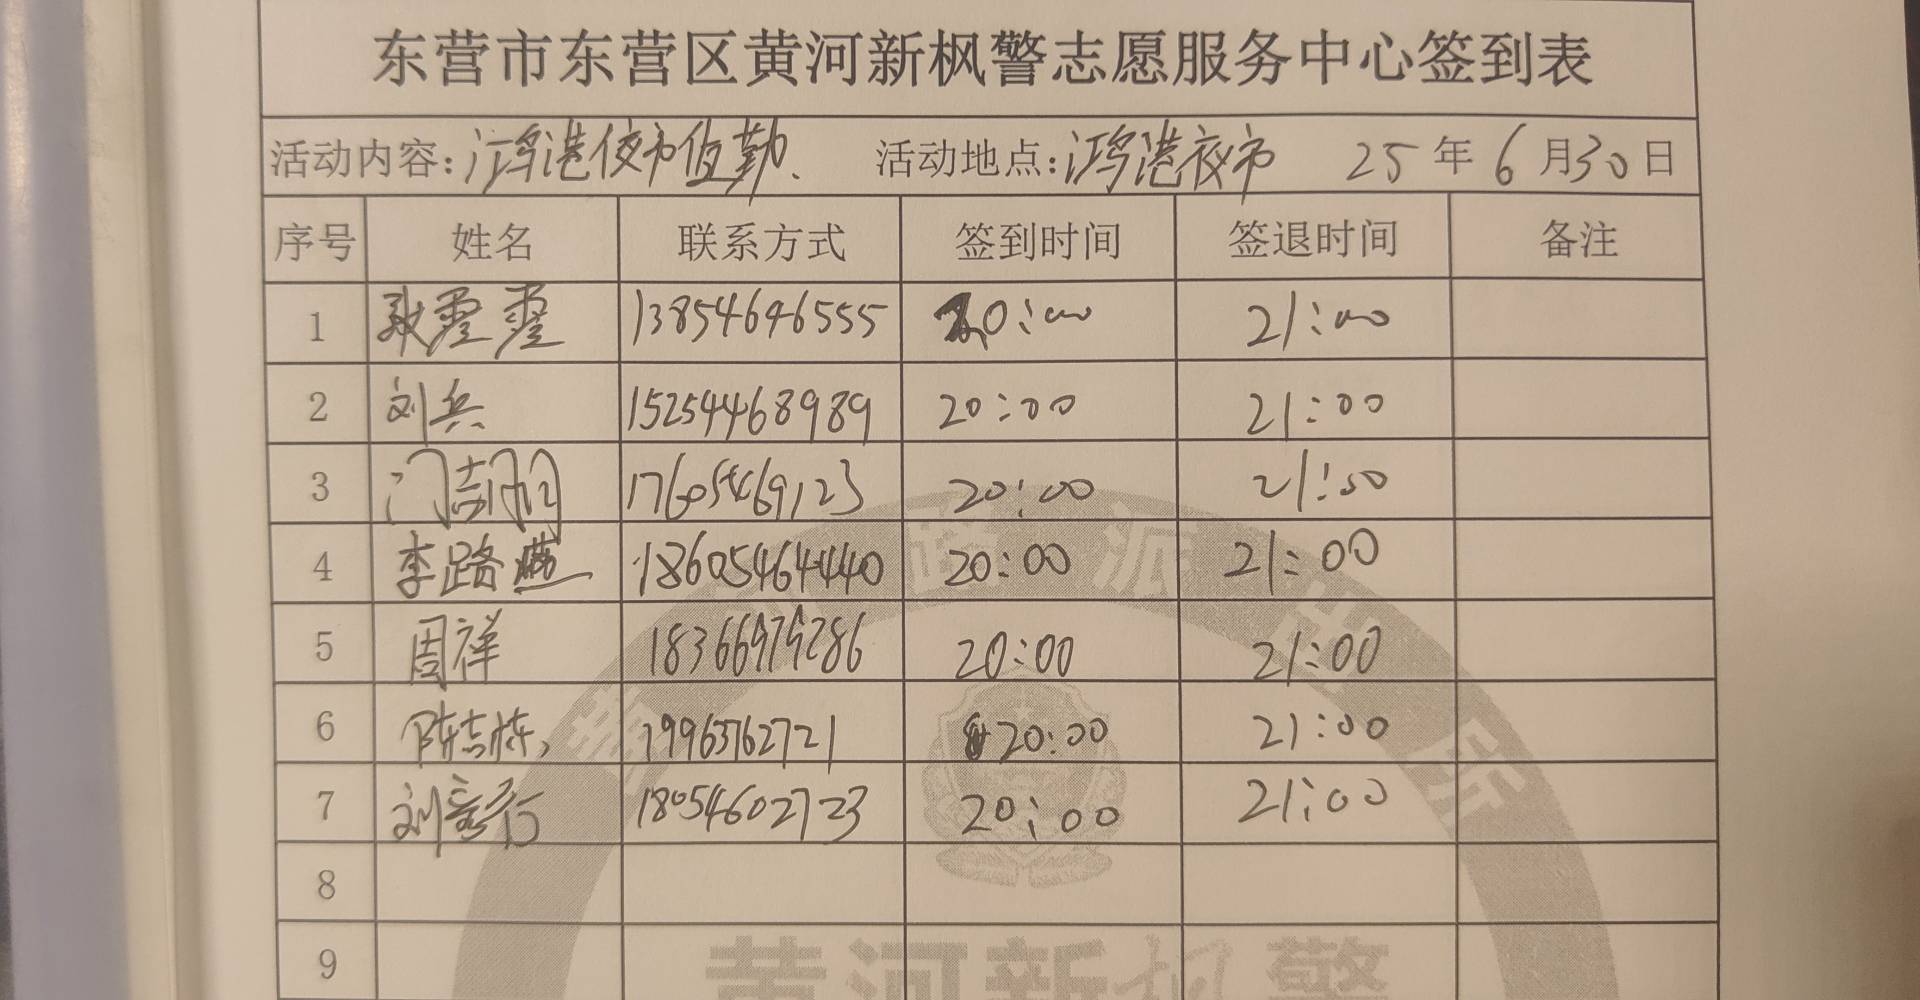 东营市东营区黄河新枫警志愿服务中心签到表
活动内容:鸿港夜市值勤. 活动地点:鸿港夜市 25年6月30日
序号 姓名 联系方式 签到时间 签退时间 备注
1 13854646555 20:00 21:00
2 刘兵 15254468989 20:00 21:00
3 门志刚 17605469123 20:00 21:00
4 李路燕 18605464440 20:00 21:00
5 周祥 18366979286 20:00 21:00
6 陈志栋 19963762721 20:00 21:00
7 刘 18054602723 20:00 21:00
8
9
派出所
黄河新枫警